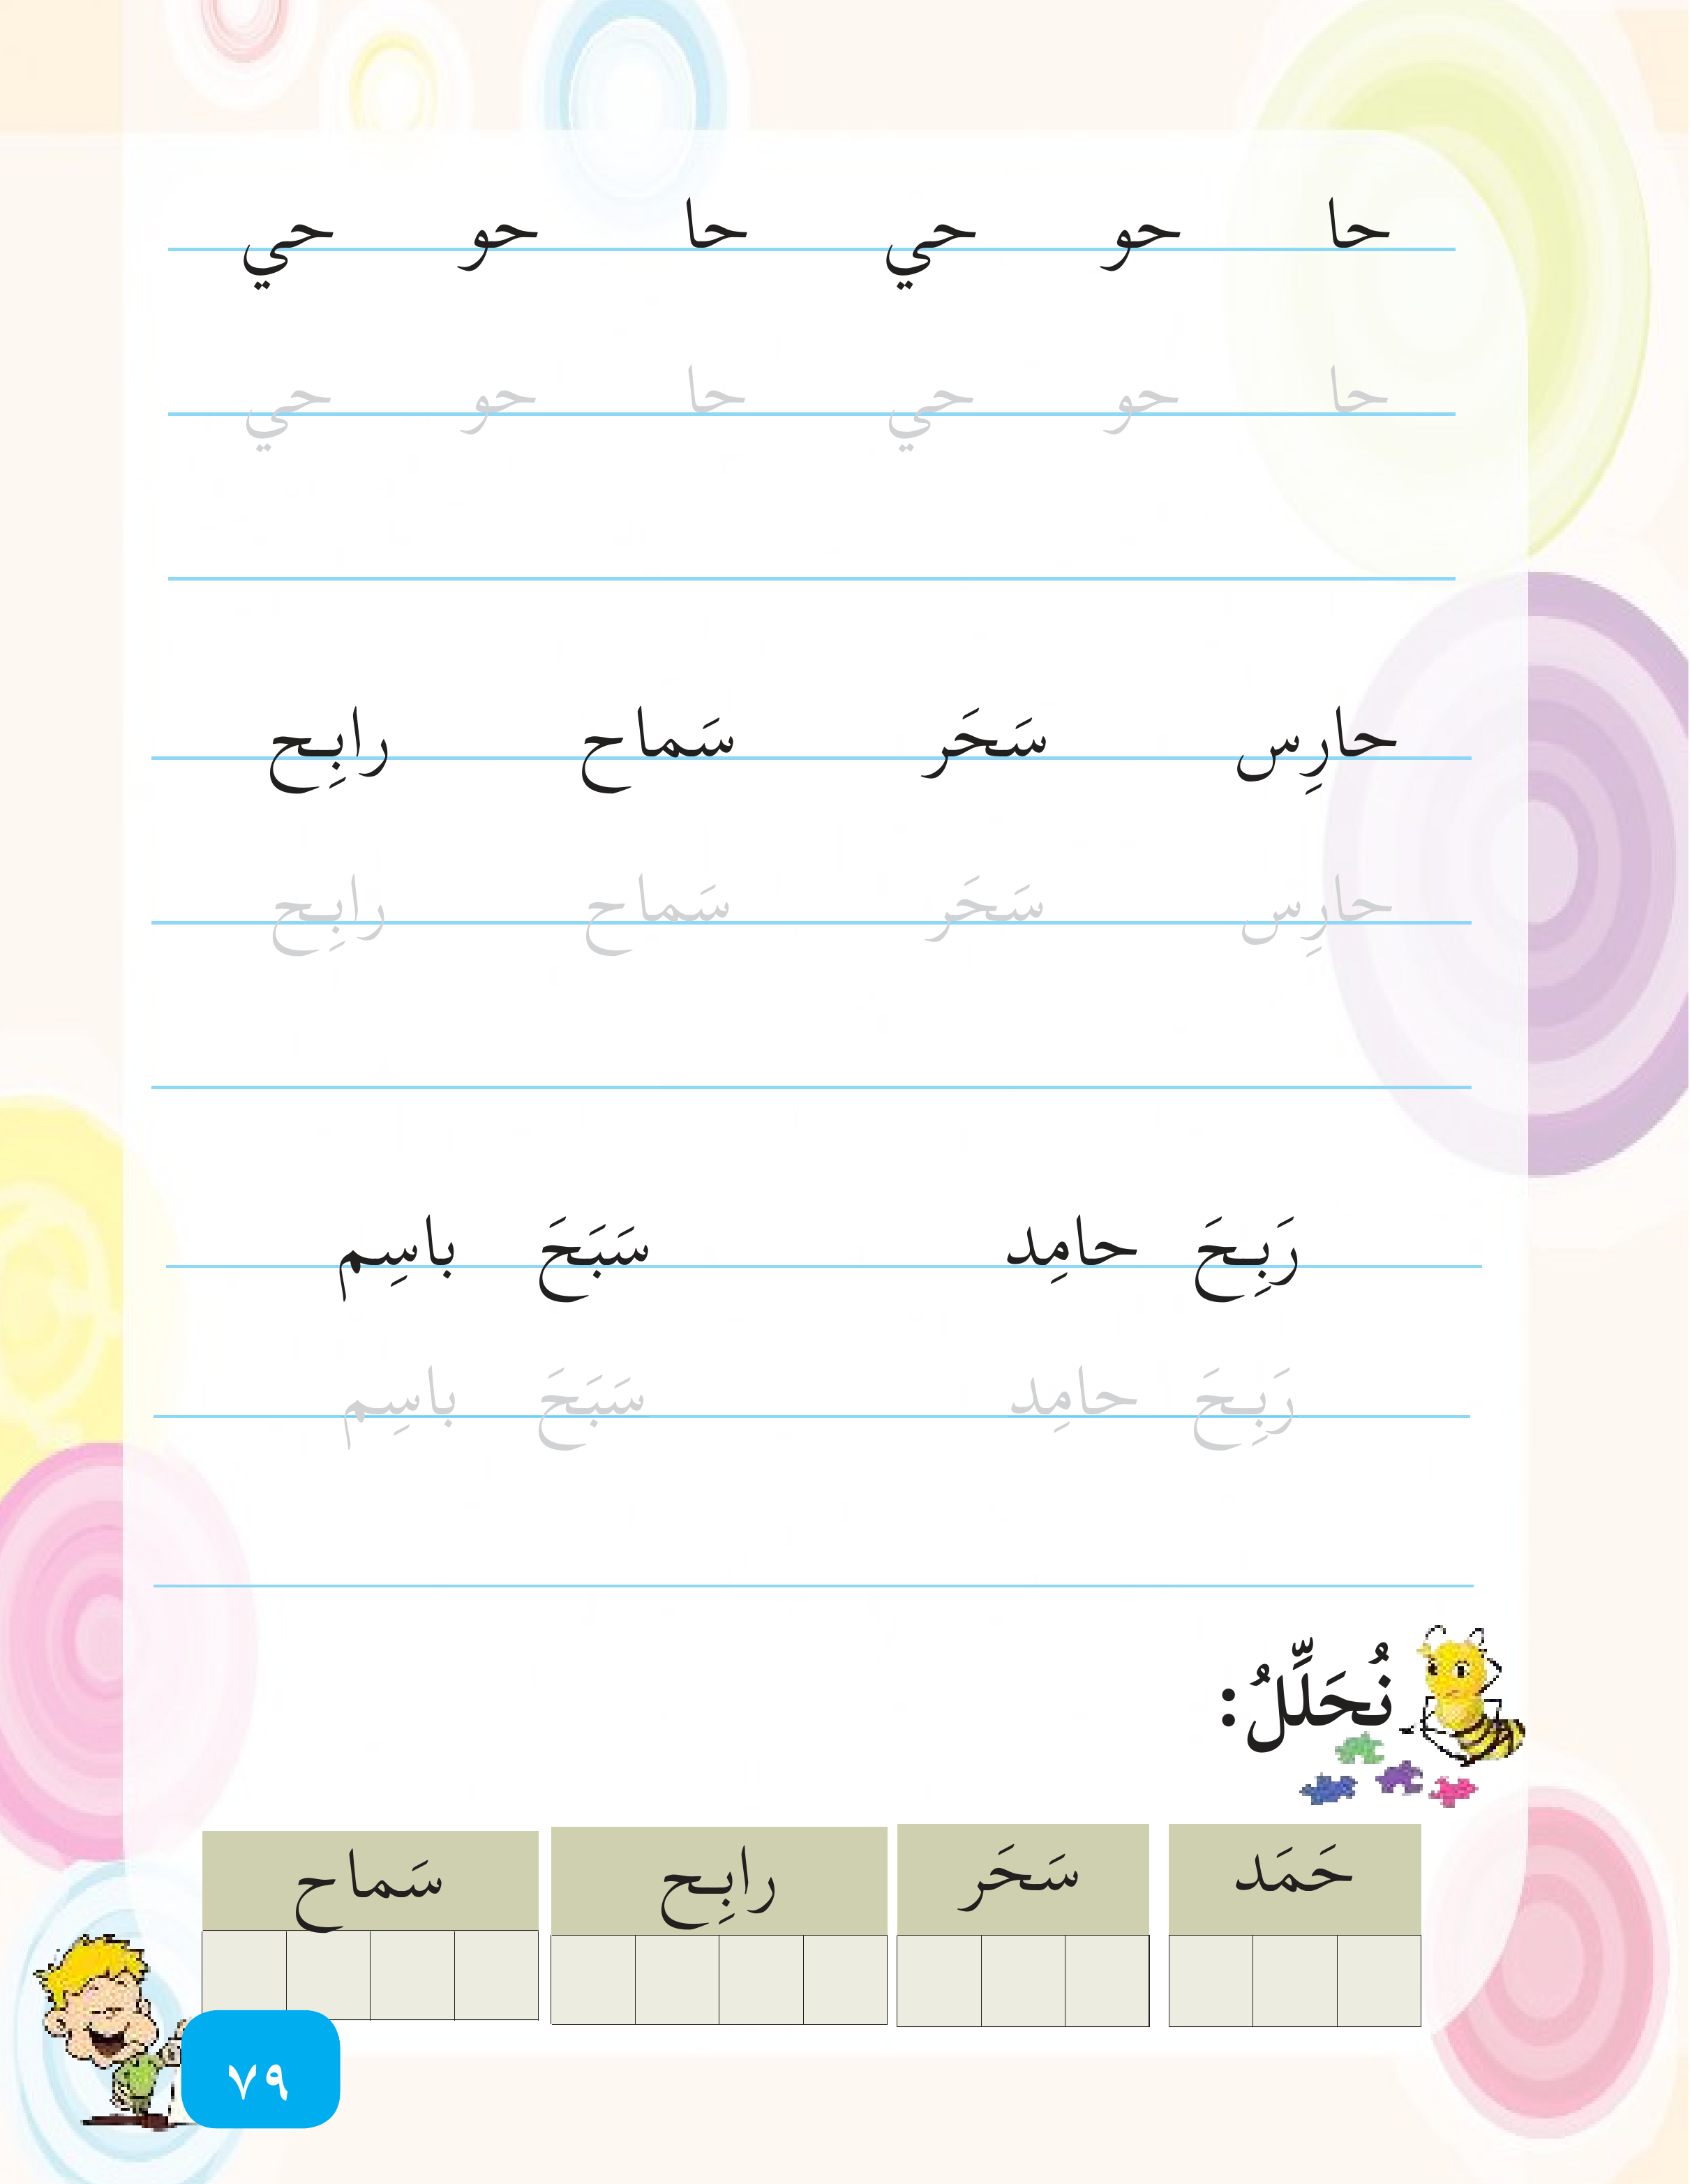 حا حو حي حا حو حي
حا حو حي حا حو حي
حارِس سَحَر سَماح رابِح
حارِس سَحَر سَماح رابِح
رَبِحَ حامِد سَبَحَ باسِم
رَبِحَ حامِد سَبَحَ باسِم
نُحَلِّلُ:
حَمَد سَحَر رابِح سَماح
٧٩